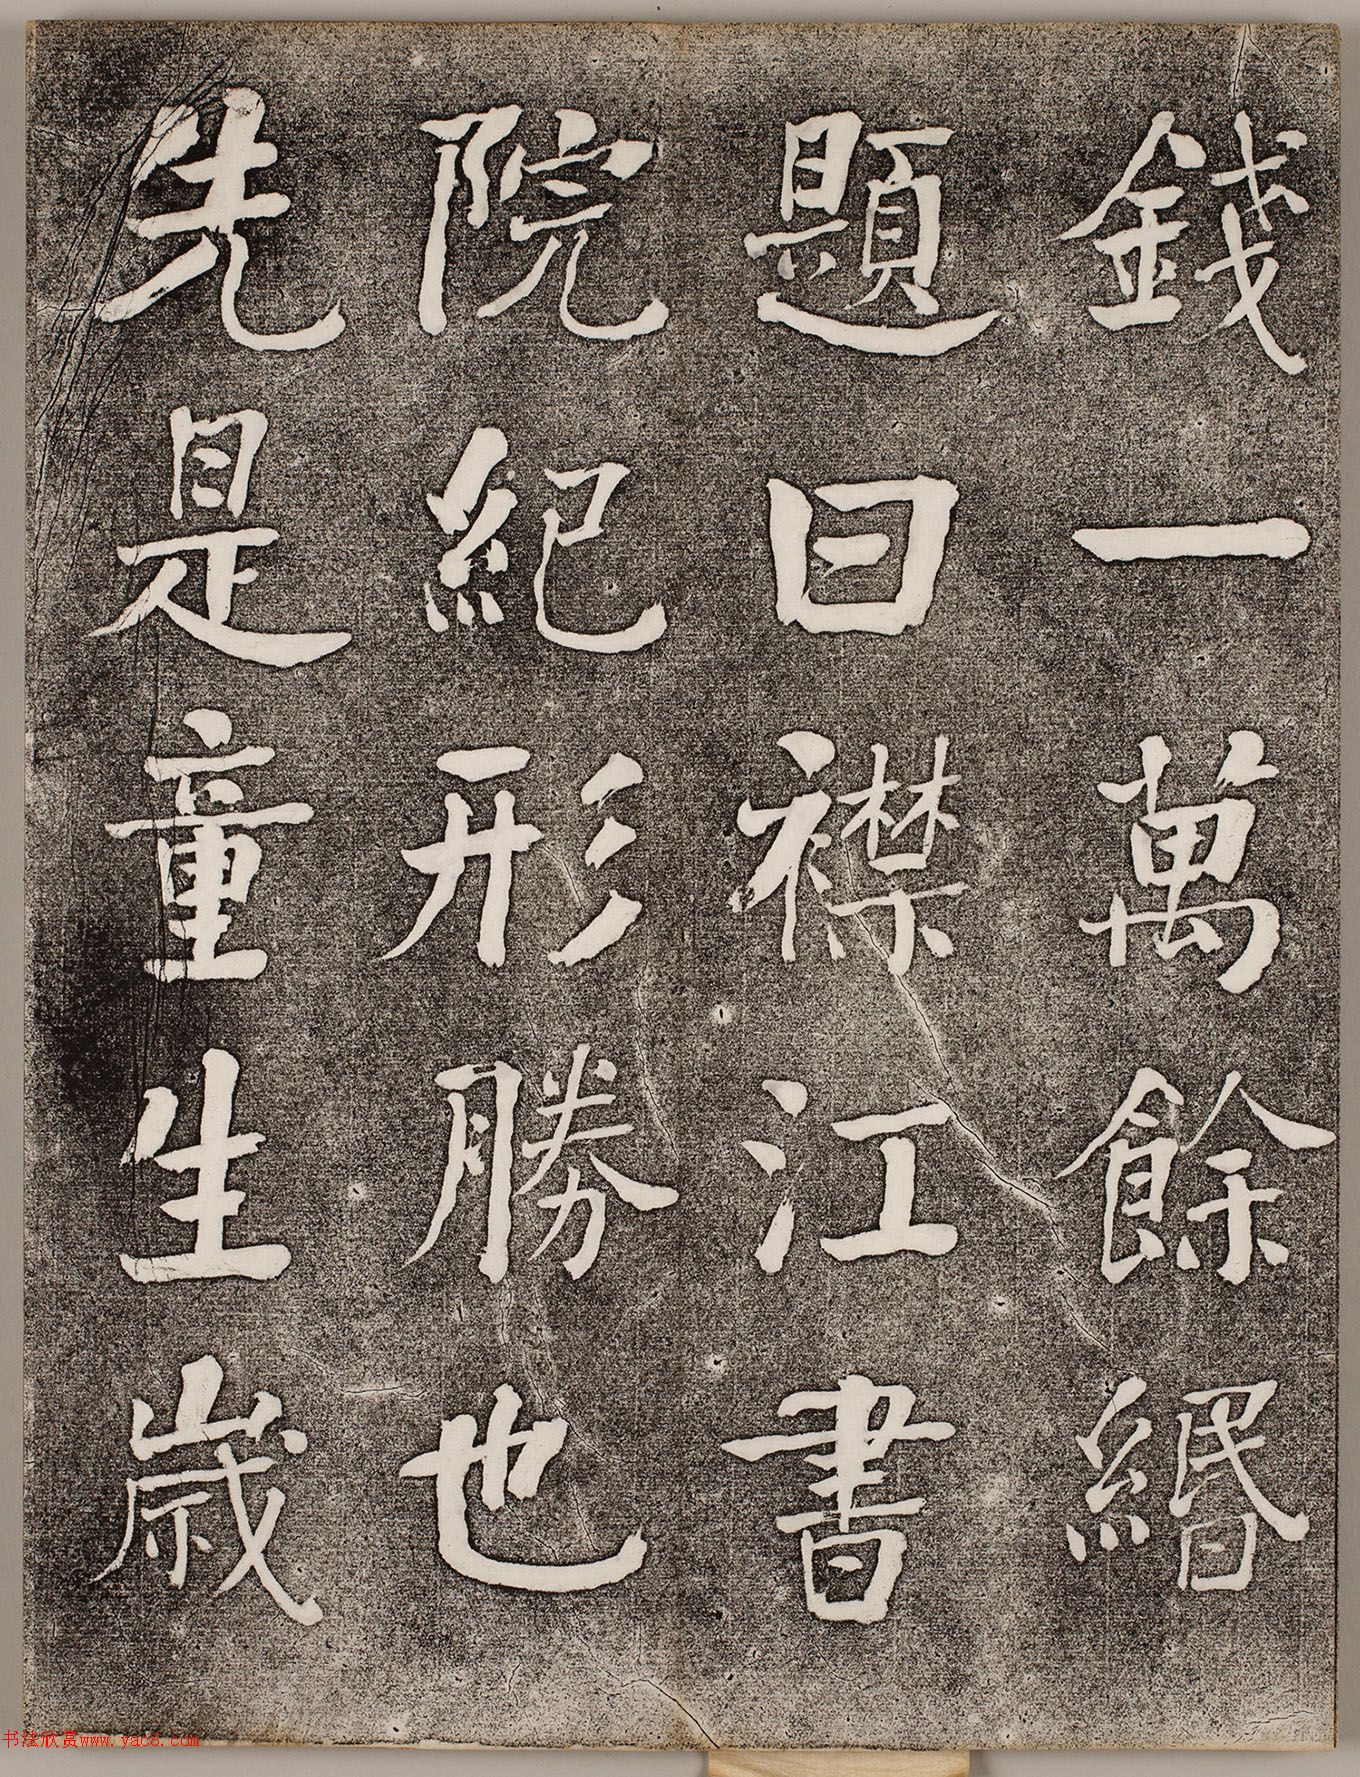 錢一萬餘緡
題曰襟江書
院紀形勝也
先是童生歲
书法欣赏www.yac8.com